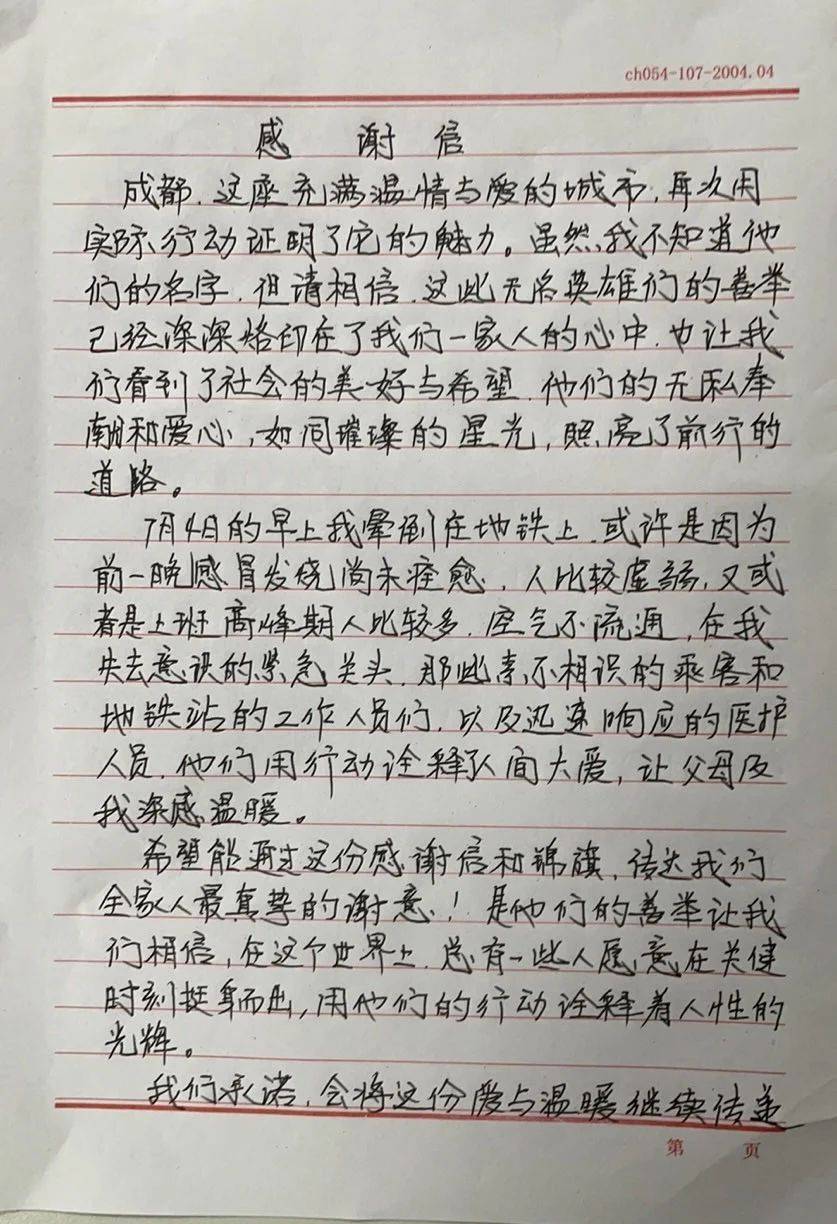 ch054-107-2004.04
感 谢 信
成都,这座充满温情与爱的城市,再次用
实际行动证明了它的魅力。虽然我不知道他
们的名字,但请相信,这些无名英雄们的善举
已经深深烙印在了我们一家人的心中,也让我
们看到了社会的美好与希望,他们的无私奉
献和爱心,如同璀璨的星光,照亮了前行的
道路。
7月4日的早上我晕倒在地铁上,或许是因为
前一晚感冒发烧尚未痊愈,人比较虚弱,又或
者是上班高峰期人比较多,空气不流通,在我
失去意识的紧急关头,那些素不相识的乘客和
地铁站的工作人员们,以及迅速响应的医护
人员,他们用行动诠释人间大爱,让父母及
我深感温暖。
希望能通过这份感谢信和锦旗,传达我们
全家人最真挚的谢意!是他们的善举让我
们相信,在这个世界上,总有一些人愿意在关健
时刻挺身而出,用他们的行动诠释着人性的
光辉。
我们承诺,会将这份爱与温暖继续传递
第 页